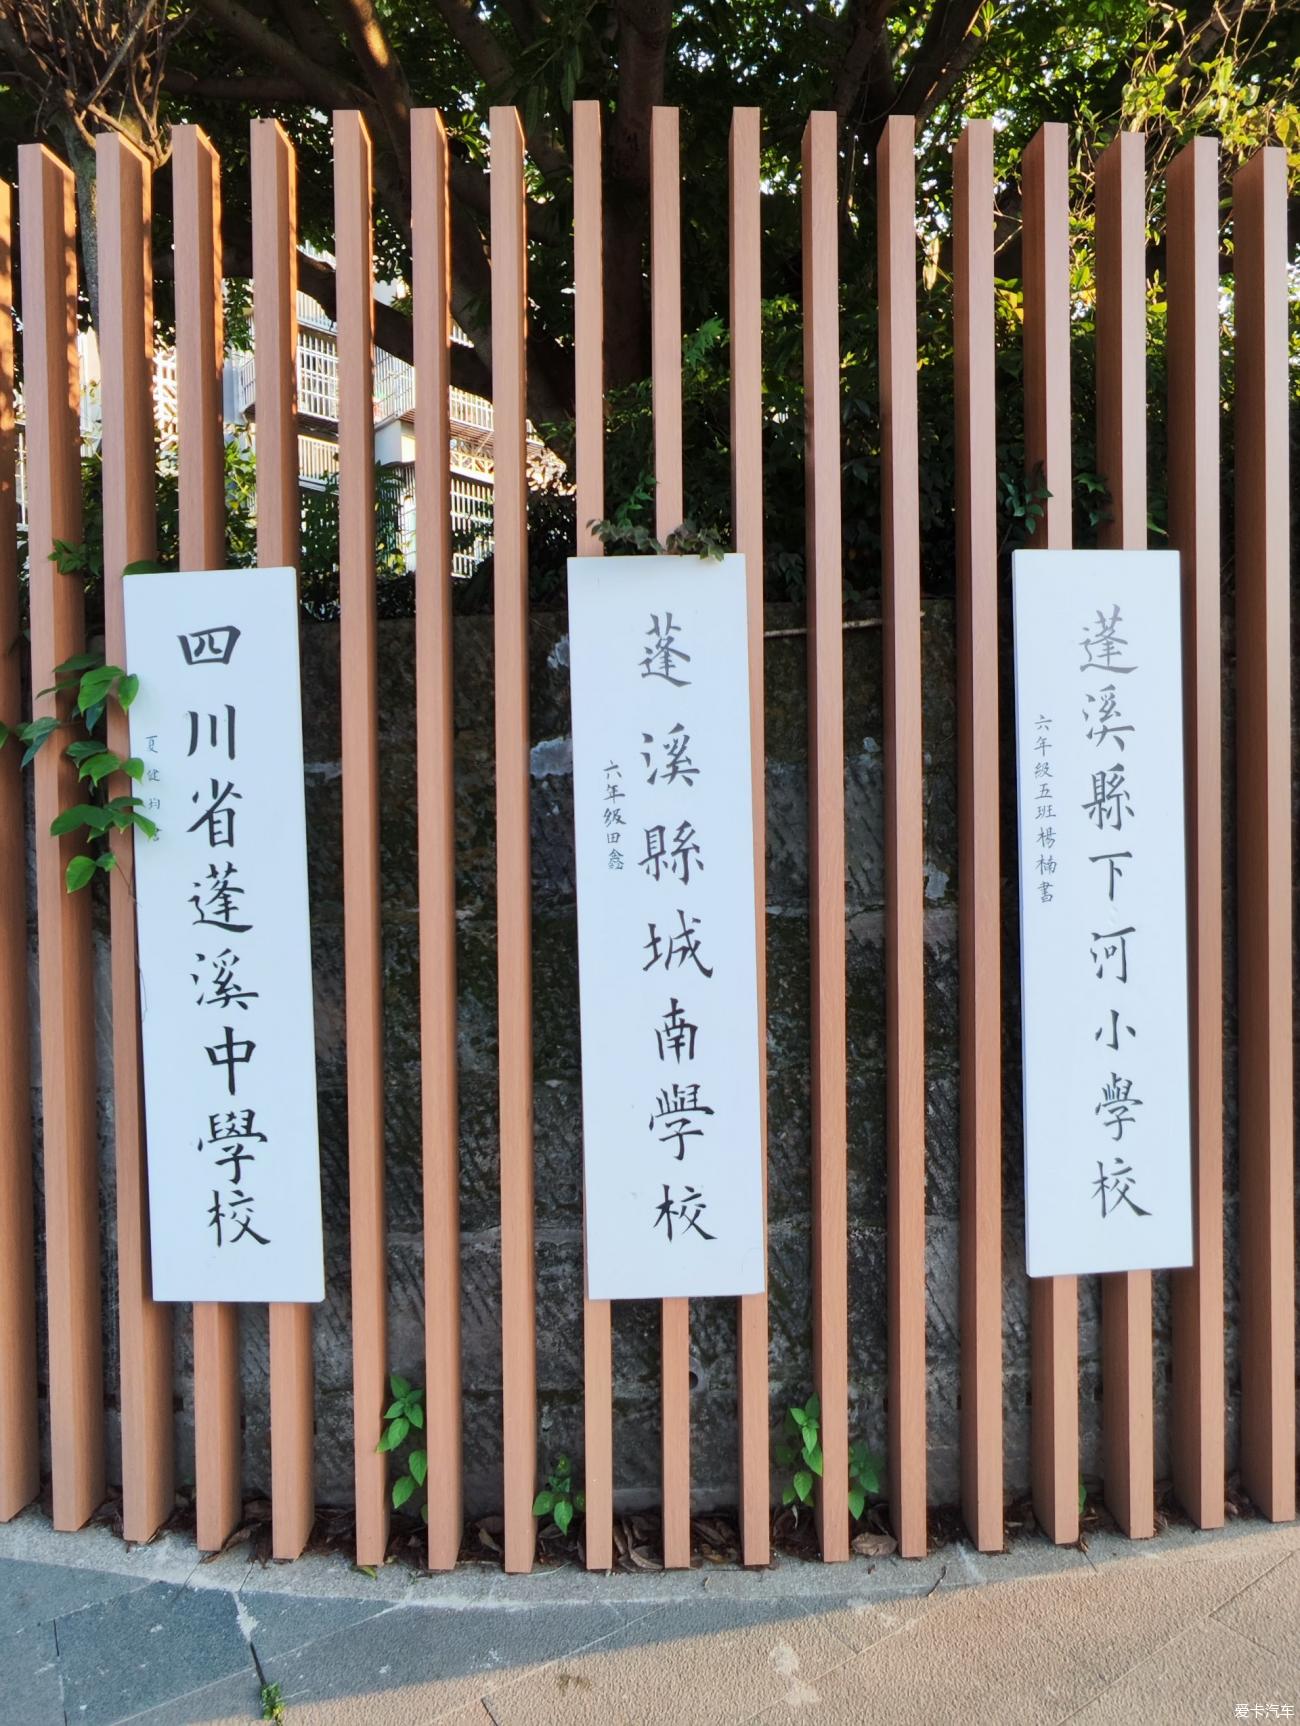 四川省蓬溪中學校
夏健均書
蓬溪縣城南學校
六年级田鑫
蓬溪縣下河小學校
六年級五班楊楠書
爱卡汽车